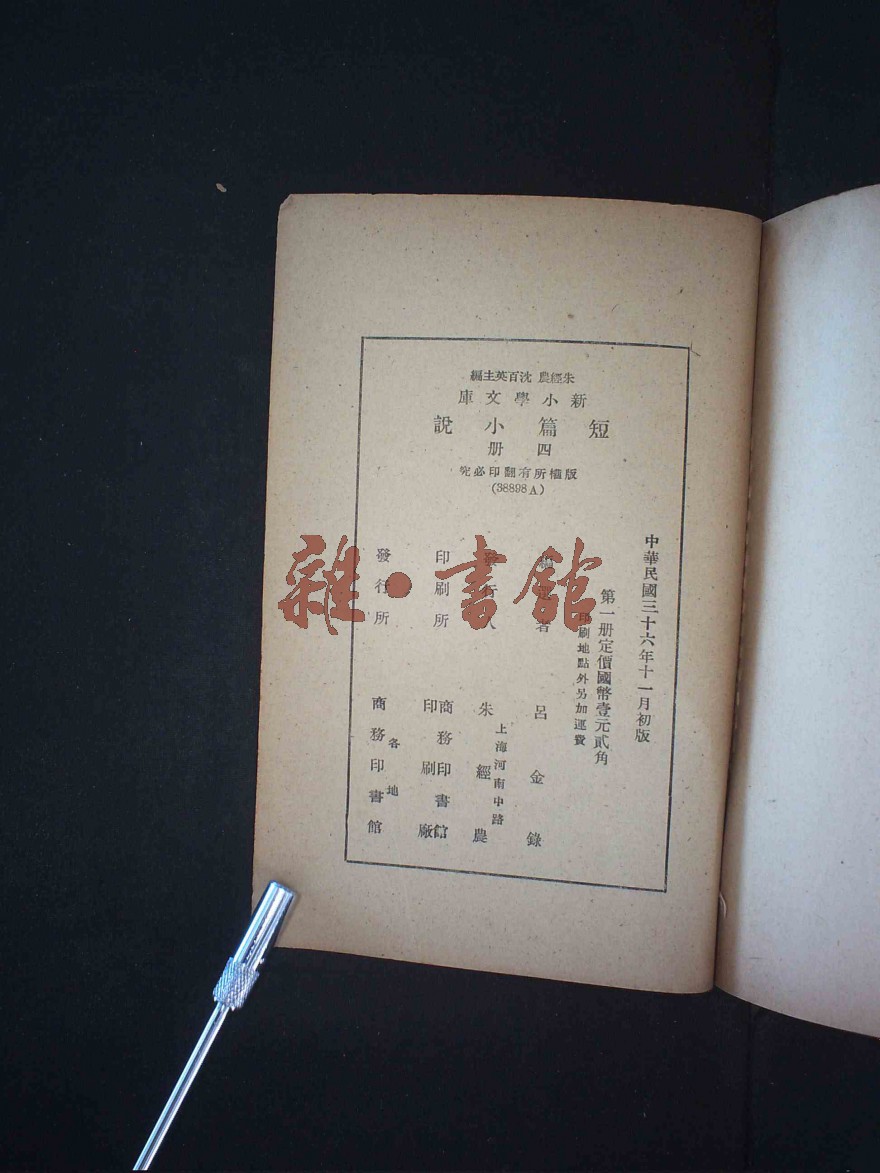 朱經農 沈百英主編
新小學文庫
短篇小說
四册
版權所有翻印必究
(38898A)
中華民國三十六年十一月初版
第一册定價國幣壹元貳角
印刷地點外另加運費
編著者 呂金錄
發行人 朱經農
上海河南中路
印刷所 商務印書館印刷廠
發行所 商務印書館
各地
雜·書館